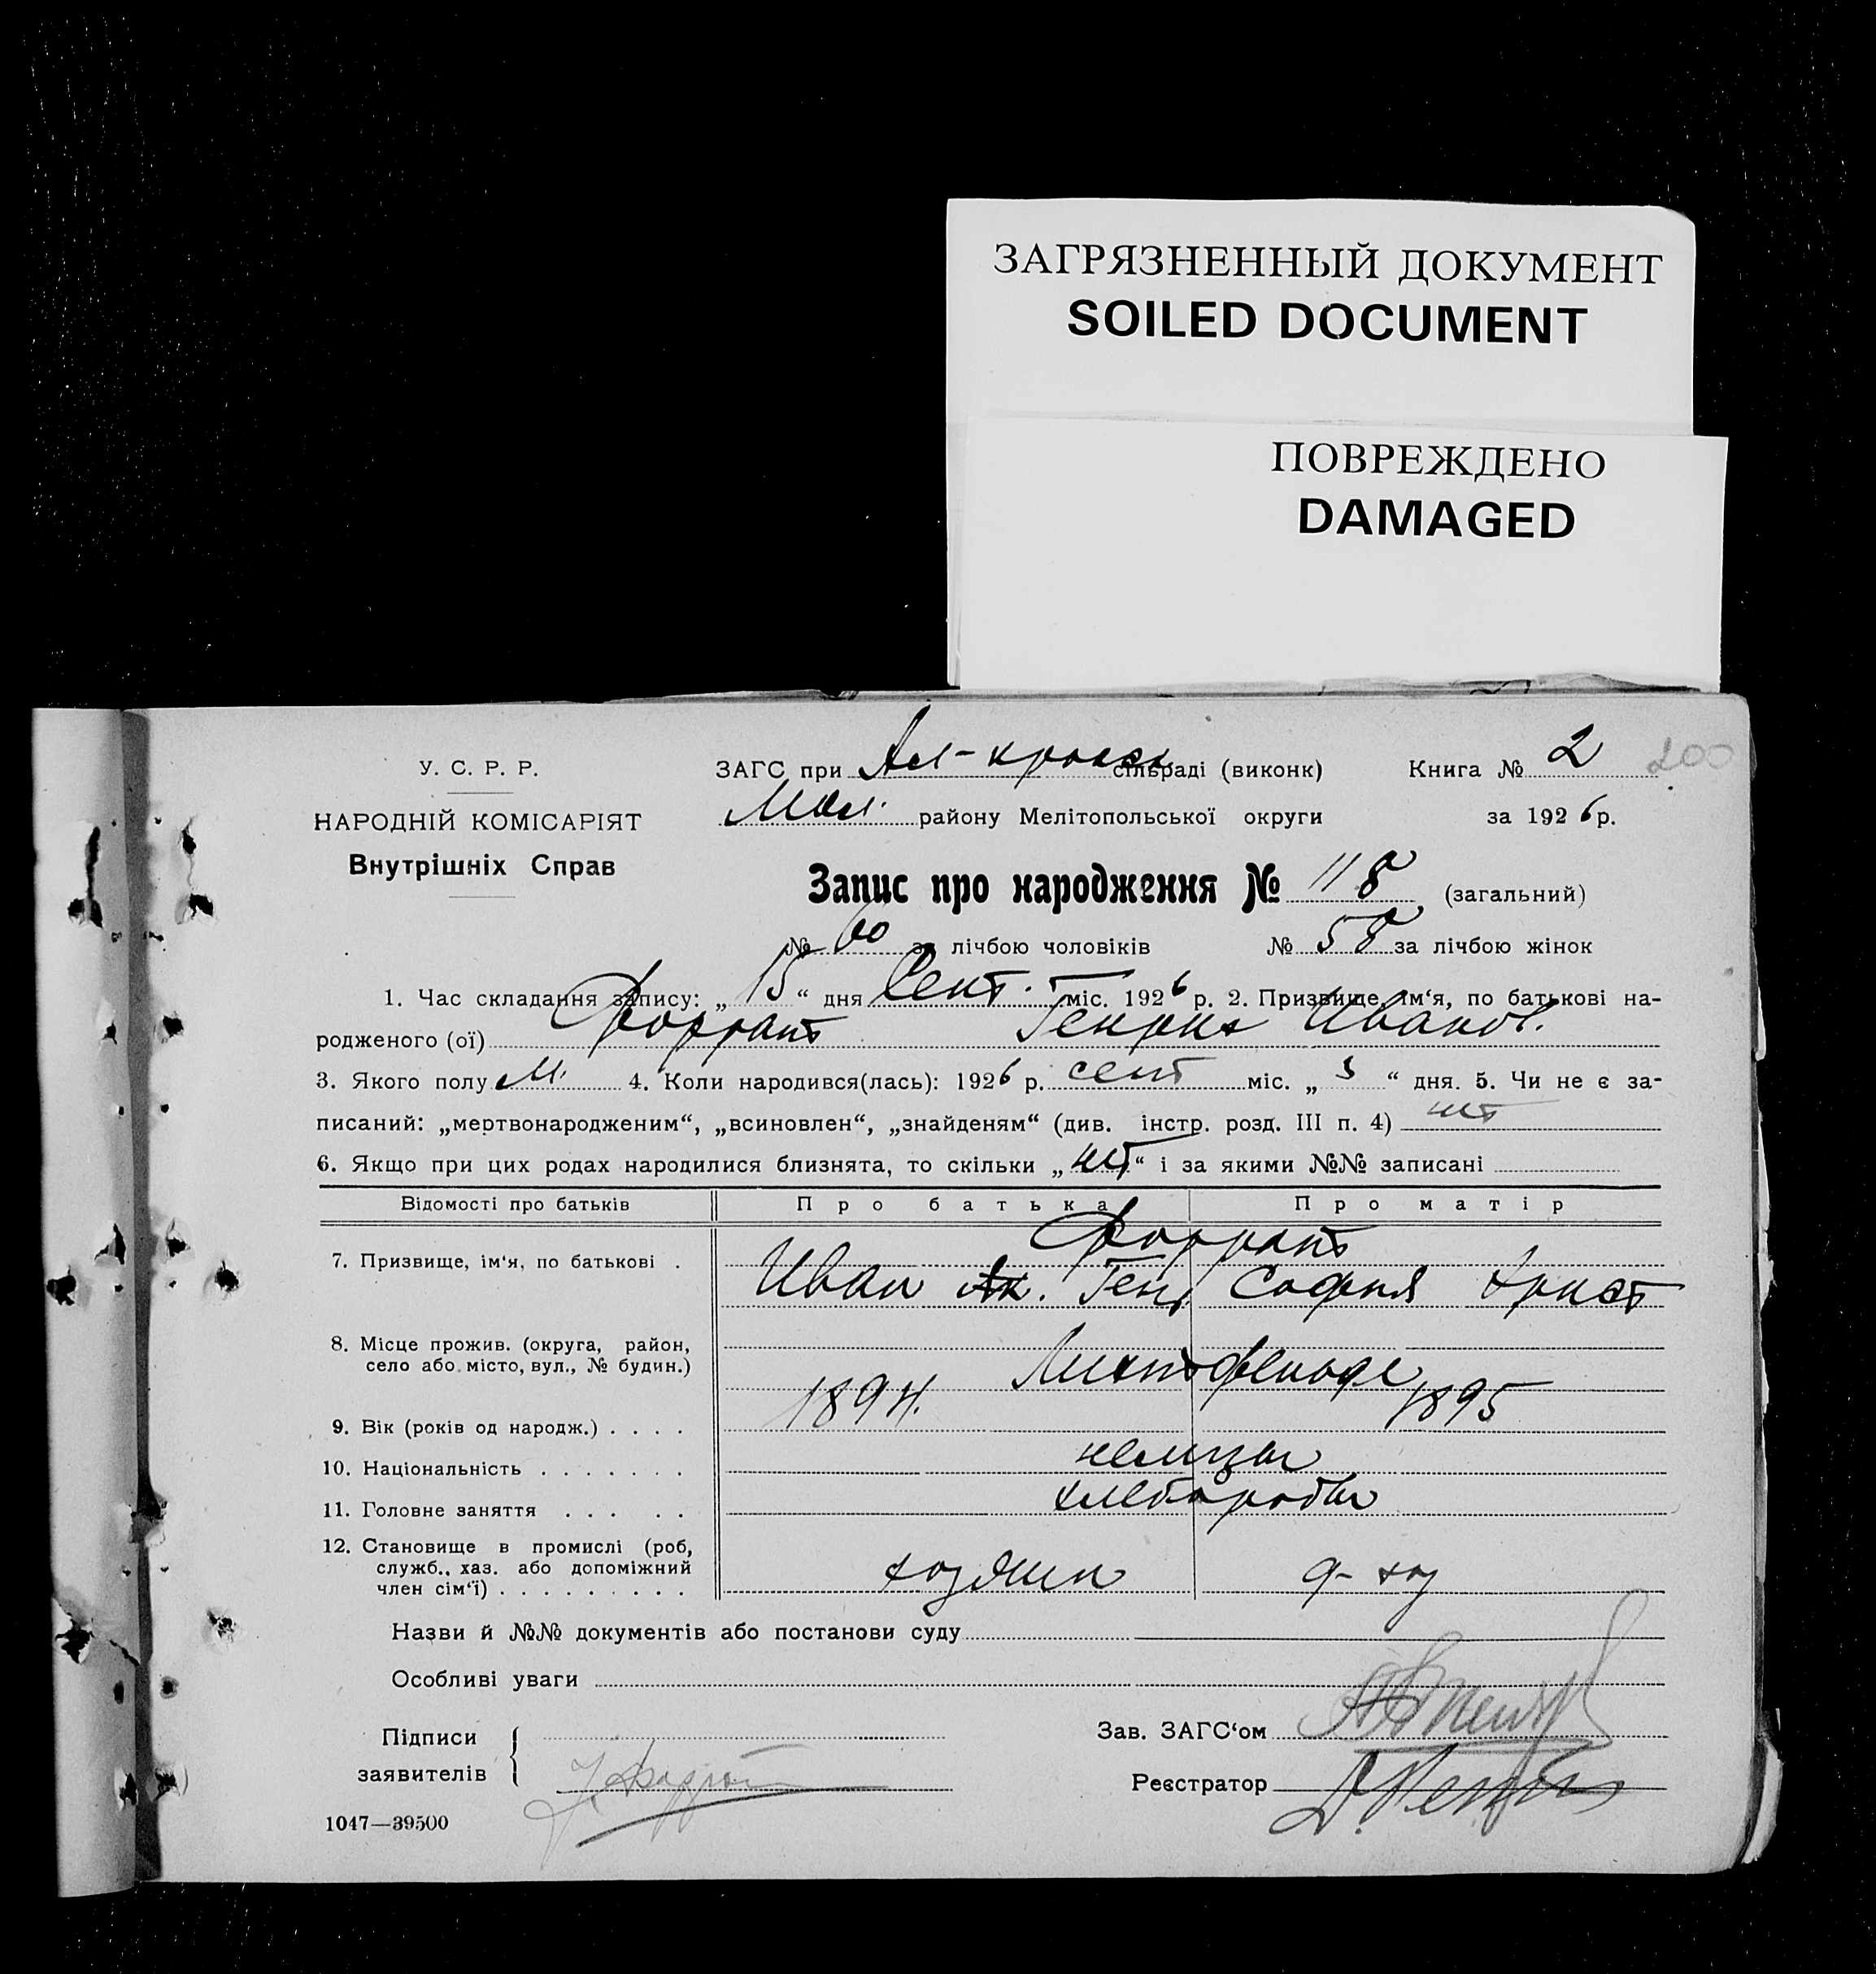 ЗАГРЯЗНЕННЫЙ ДОКУМЕНТ
SOILED DOCUMENT
ПОВРЕЖДЕНО
DAMAGED
У. С. Р. Р.
НАРОДНІЙ КОМІСАРІЯТ
Внутрішніх Справ
ЗАГС при Ал- сільраді (виконк) Книга № 2 200
Мол. району Мелітопольської округи за 1926 р.
Запис про народження № 118 (загальний)
№ 60 за лічбою чоловіків № 58 за лічбою жінок
1. Час складання запису: „15“ дня Сент. міс. 1926 р. 2. Призвище, ім‘я, по батькові на-
родженого (ої) Форрат Генрих Иванов.
3. Якого полу м. 4. Коли народився(лась): 1926 р. сент міс. „3“ дня. 5. Чи не є за-
писаний: „мертвонародженим“, „всиновлен“, „знайденям“ (див. інстр. розд. III п. 4) нет
6. Якщо при цих родах народилися близнята, то скільки „нет“ і за якими №№ записані
Відомості про батьків Про батька Про матір
Форрат
7. Призвище, ім‘я, по батькові . Иван Ген. София Христ
8. Місце прожив. (округа, район,
село або місто, вул., № будин.) Лихтфельде
9. Вік (років од народж.) . . . . 1894. 1895
10. Національність . . . . . . . немцы
11. Головне заняття . . . . . хлеборобы
12. Становище в промислі (роб,
служб., хаз. або допоміжний
член сім‘ї) . . . . . . . . . хозяин д- хоз
Назви й №№ документів або постанови суду
Особливі уваги
Підписи
заявителів Форрат
Зав. ЗАГС‘ом
Реєстратор
1047—39500